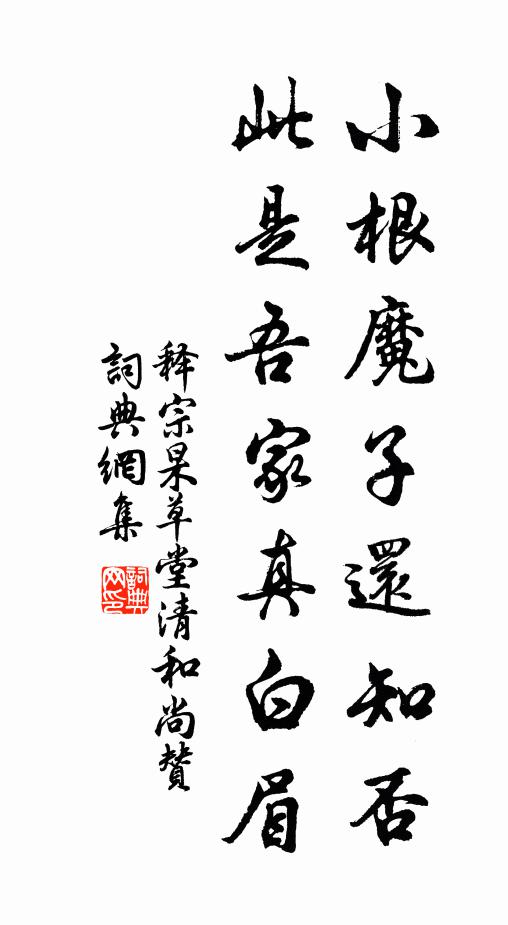 小根魔子還知否
此是吾家真白眉
释宗杲草堂清和尚贊
詞典網集
詞典
网印